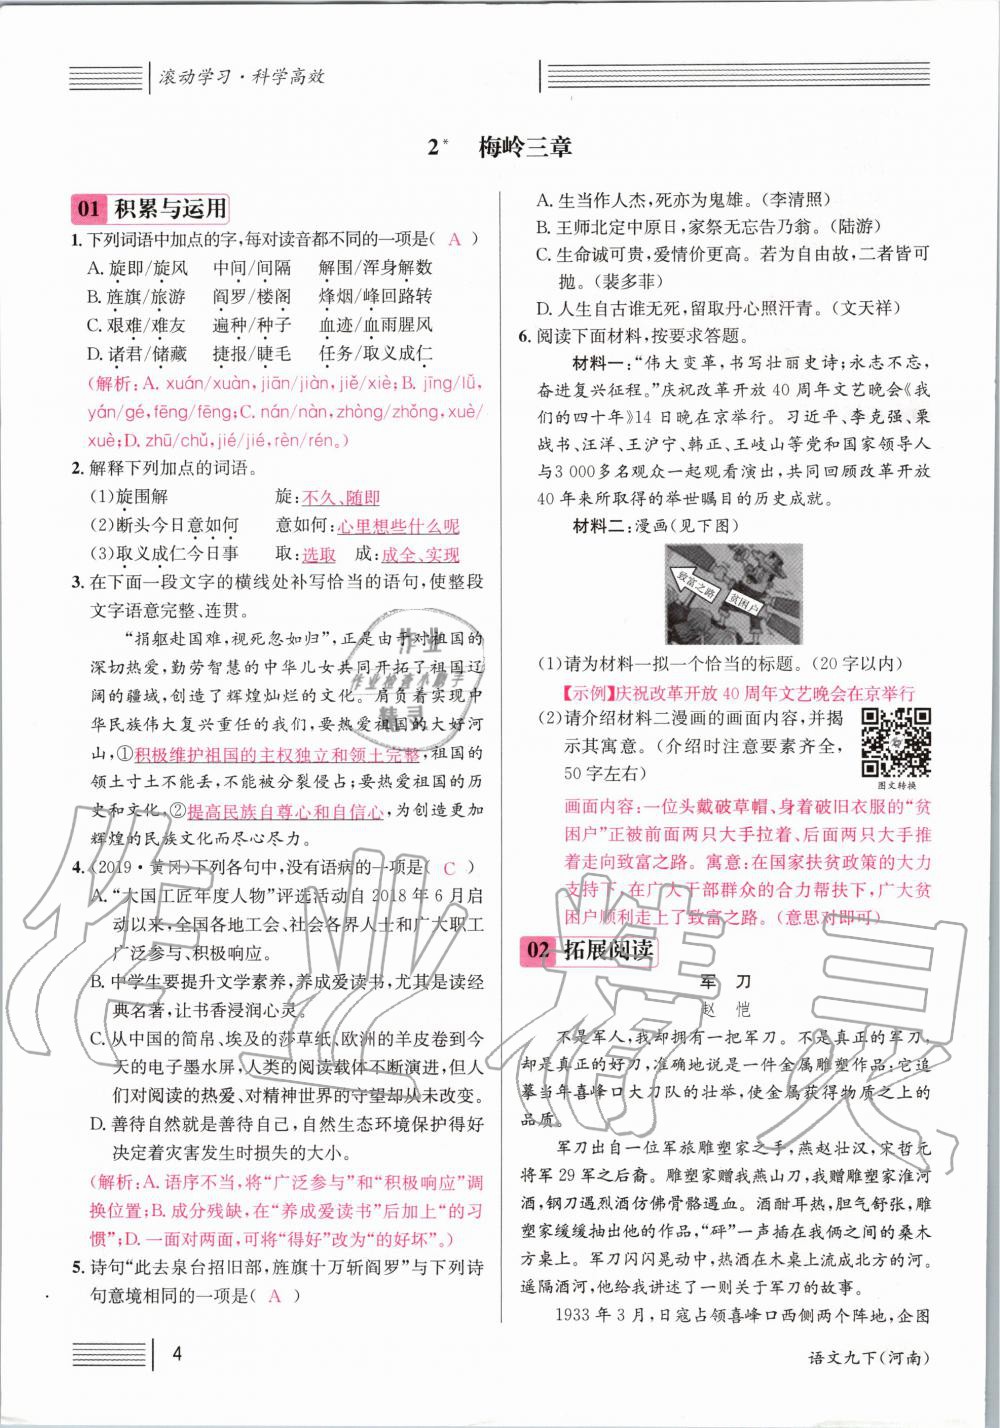 滚动学习·科学高效
2* 梅岭三章
01 积累与运用
1.下列词语中加点的字,每对读音都不同的一项是( A )
A.旋即/旋风 中间/间隔 解围/浑身解数
B.旌旗/旅游 阎罗/楼阁 烽烟/峰回路转
C.艰难/难友 遍种/种子 血迹/血雨腥风
D.诸君/储藏 捷报/睫毛 任务/取义成仁
(解析:A. xuán/xuàn,jiān/jiàn,jiě/xiè;B. jīng/lǚ,
yán/gé,fēng/fēng;C. nán/nàn,zhòng/zhǒng,xuè/
xuè;D. zhū/chǔ,jié/jié,rèn/rén。)
2.解释下列加点的词语。
(1)旋围解 旋:不久、随即
(2)断头今日意如何 意如何:心里想些什么呢
(3)取义成仁今日事 取:选取 成:成全、实现
3.在下面一段文字的横线处补写恰当的语句,使整段
文字语意完整、连贯。
“捐躯赴国难,视死忽如归”,正是由于对祖国的
深切热爱,勤劳智慧的中华儿女共同开拓了祖国辽
阔的疆域,创造了辉煌灿烂的文化。肩负着实现中
华民族伟大复兴重任的我们,要热爱祖国的大好河
山,①积极维护祖国的主权独立和领土完整,祖国的
领土寸土不能丢,不能被分裂侵占;要热爱祖国的历
史和文化,②提高民族自尊心和自信心,为创造更加
辉煌的民族文化而尽心尽力。
4.(2019·黄冈)下列各句中,没有语病的一项是( C )
A.“大国工匠年度人物”评选活动自2018年6月启
动以来,全国各地工会、社会各界人士和广大职工
广泛参与、积极响应。
B.中学生要提升文学素养,养成爱读书,尤其是读经
典名著,让书香浸润心灵。
C.从中国的简帛、埃及的莎草纸、欧洲的羊皮卷到今
天的电子墨水屏,人类的阅读载体不断演进,但人
们对阅读的热爱、对精神世界的守望却从未改变。
D.善待自然就是善待自己,自然生态环境保护得好
决定着灾害发生时损失的大小。
(解析:A.语序不当,将“广泛参与”和“积极响应”调
换位置;B.成分残缺,在“养成爱读书”后加上“的习
惯”;D.一面对两面,可将“得好”改为“的好坏”。)
5.诗句“此去泉台招旧部,旌旗十万斩阎罗”与下列诗
句意境相同的一项是( A )
A.生当作人杰,死亦为鬼雄。(李清照)
B.王师北定中原日,家祭无忘告乃翁。(陆游)
C.生命诚可贵,爱情价更高。若为自由故,二者皆可
抛。(裴多菲)
D.人生自古谁无死,留取丹心照汗青。(文天祥)
6.阅读下面材料,按要求答题。
材料一:“伟大变革,书写壮丽史诗;永志不忘,
奋进复兴征程。”庆祝改革开放40周年文艺晚会《我
们的四十年》14日晚在京举行。习近平、李克强、栗
战书、汪洋、王沪宁、韩正、王岐山等党和国家领导人
与3 000多名观众一起观看演出,共同回顾改革开放
40年来所取得的举世瞩目的历史成就。
材料二:漫画(见下图)
致富之路
贫困户
(1)请为材料一拟一个恰当的标题。(20字以内)
【示例】庆祝改革开放40周年文艺晚会在京举行
(2)请介绍材料二漫画的画面内容,并揭
示其寓意。(介绍时注意要素齐全,
50字左右)
图文转换
画面内容:一位头戴破草帽、身着破旧衣服的“贫
困户”正被前面两只大手拉着、后面两只大手推
着走向致富之路。寓意:在国家扶贫政策的大力
支持下,在广大干部群众的合力帮扶下,广大贫
困户顺利走上了致富之路。(意思对即可)
02 拓展阅读
军 刀
赵 恺
不是军人,我却拥有一把军刀。不是真正的军刀,
却是真正的好刀,准确地说是一件金属雕塑作品;它追
摹当年喜峰口大刀队的壮举,使金属获得物质之上的
品质。
军刀出自一位军旅雕塑家之手,燕赵壮汉,宋哲元
将军29军之后裔。雕塑家赠我燕山刀,我赠雕塑家淮河
酒,钢刀遇烈酒仿佛骨骼遇血。酒酣耳热,胆气舒张,雕
塑家缓缓抽出他的作品,“砰”一声插在我俩之间的桑木
方桌上。军刀闪闪晃动中,我酒桌流成北方的河。
遥隔酒河,他给我讲述了一则关于军刀的故事。
1933年3月,日寇占领喜峰口西侧两个阵地,企图
4
语文九下(河南)
作业
作业检查小助手
精灵
作业精灵